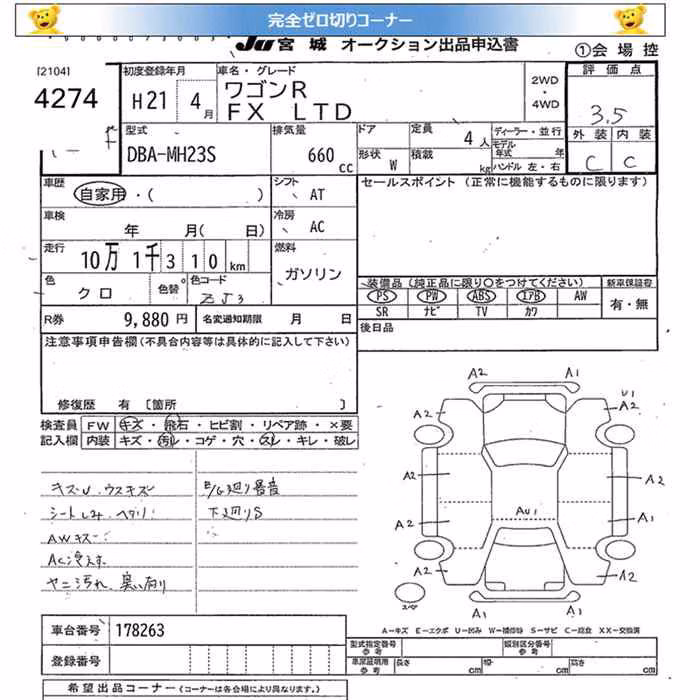 完全ゼロ切りコーナー
JU宮城 オークション出品申込書
①会場控
[2104]
4274
初度登録年月
H21 4月
車名・グレード
ワゴンR
FX LTD
2WD
・
4WD
評価点
3.5
外装 内装
C C
型式
DBA-MH23S
排気量
660 cc
ドア
形状 W
定員 4人
積載 kg
ディーラー・並行
モデル年式 年
ハンドル 左・右
車歴 自家用・( )
シフト AT
セールスポイント (正常に機能するものに限ります)
車検 年 月( 日)
冷房 AC
走行 10万 1千 3 1 0 km
燃料
ガソリン
色 クロ
色替
色コード ZJ3
装備品 (純正品に限り○をつけてください)
新車保証書
PS PW ABS エアB AW
有・無
SR ナビ TV カワ
R券 9,880円
名変通知期限 月 日
後日品
注意事項申告欄(不具合内容等は具体的に記入して下さい)
修復歴 有 〔箇所 〕
検査員
記入欄
FW キズ・飛石・ヒビ割・リペア跡・×要
内装 キズ・汚れ・コゲ・穴・スレ・キレ・破レ
キズU ウスキズ
シートしみ ヘタリ
AWキズ
ヤニ汚れ、臭い有り
E/G廻り異音
下廻りS
A2 A1
A2 U1
A2
A2 A2
A2 AU1 A1
A2 A2
A1 A1
スペア
A−キズ E−エクボ U−凹み W−補修跡 S−サビ C−腐食 XX−交換済
車台番号 178263
登録番号
型式指定番号
参考
類別区分番号
参考
車庫証明用
参考
長さ cm 幅 cm 高さ cm
希望出品コーナー (コーナーは各会場により異なります。)